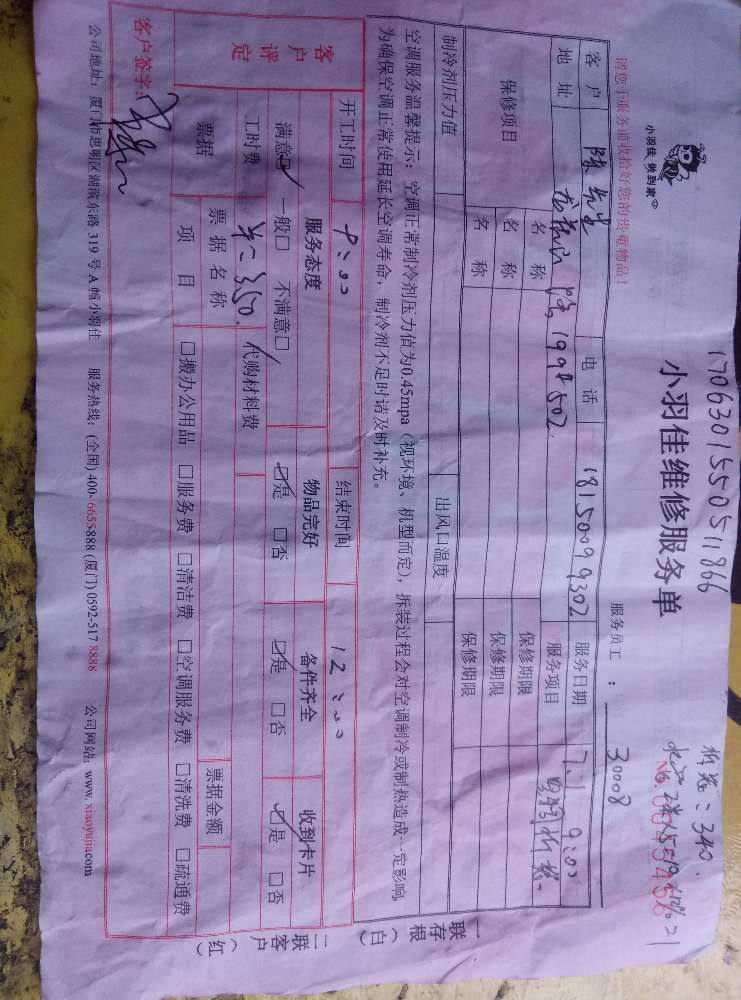 17063015505511866
小羽佳 做到家
小羽佳维修服务单
拆装：340.
NO.
请您于服务前收拾好您的贵重物品！
服务员工 ： 30008
客 户 陈先生 电 话 18150099302 服务日期 7.1 9:00
地 址 服务项目
保修项目 名 称 保修期限
名 称 保修期限
名 称 保修期限
制冷剂压力值 出风口温度
空调服务温馨提示：空调正常制冷剂压力值为0.45mpa（视环境、机型而定），拆装过程会对空调制冷或制热造成一定影响，
为确保空调正常使用延长空调寿命，制冷剂不足时请及时补充。
一联存根（白）
二联客户（红）
开工时间 9:00 结束时间 12:00
客户评定
服务态度 物品完好 备件齐全 收到卡片
满意☑ 一般□ 不满意□ ☑是 □否 ☑是 □否 ☑是 □否
工时费 350. 代购材料费
票据 票 据 名 称 票据金额
项 目 □搬办公用品 □服务费 □清洁费 □空调服务费 □清洗费 □疏通费
客户签字：
公司地址：厦门市思明区湖滨东路 319 号 A 幢小羽佳 服务热线：(全国) 400-6655-888 (厦门) 0592-517 8888 公司网站：www.xiaoyujia.com